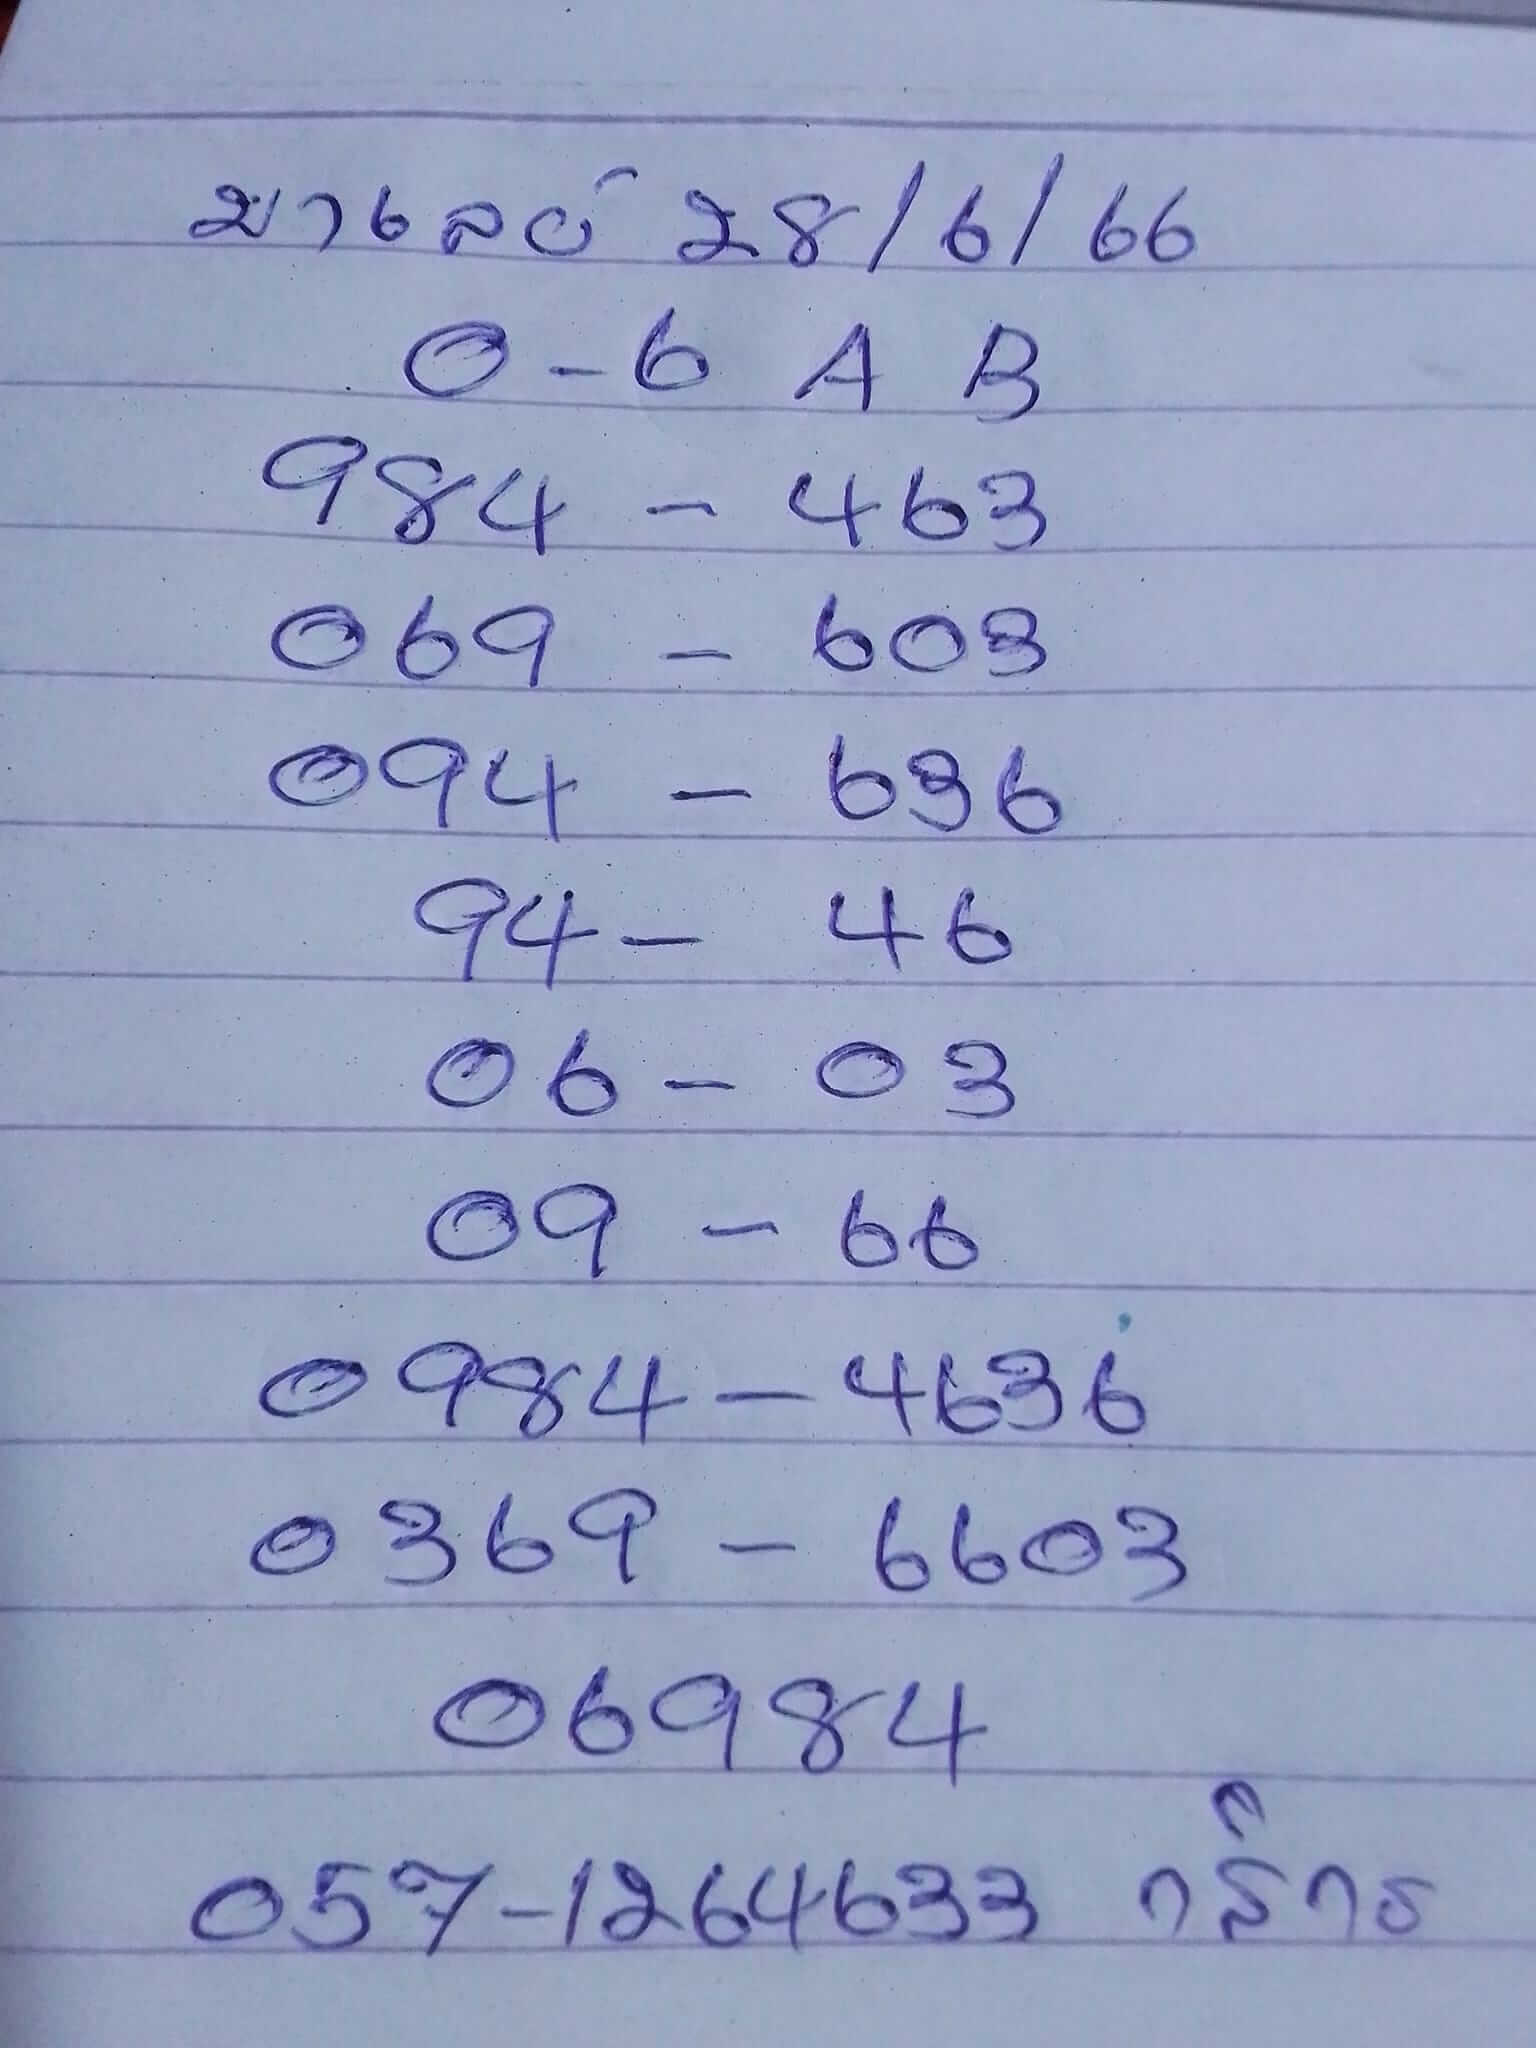 มาเลย์ 28/6/66
0-6 A B
984 - 463
069 - 603
094 - 636
94 - 46
06 - 03
09 - 66
0984 - 4636
0369 - 6603
06984
057-1264633 กสิกร